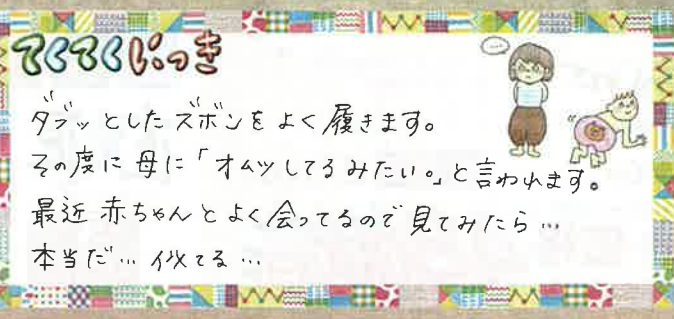 てくてくにっき
…
ダブッとしたズボンをよく履きます。
その度に母に「オムツしてるみたい。」と言われます。
最近赤ちゃんとよく会ってるので見てみたら…
本当だ…似てる…